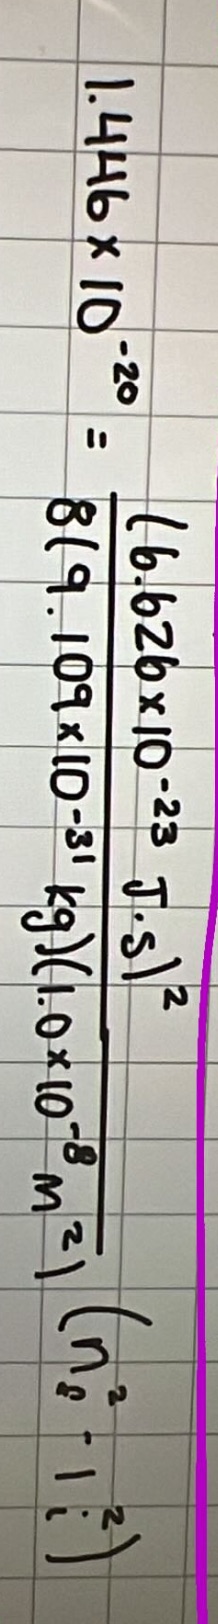 1.446 × 10⁻²⁰ = (6.626 × 10⁻²³ J·s)² / 8(9.109 × 10⁻³¹ kg)(1.0 × 10⁻⁸ m²) (n_f² - 1_i²)